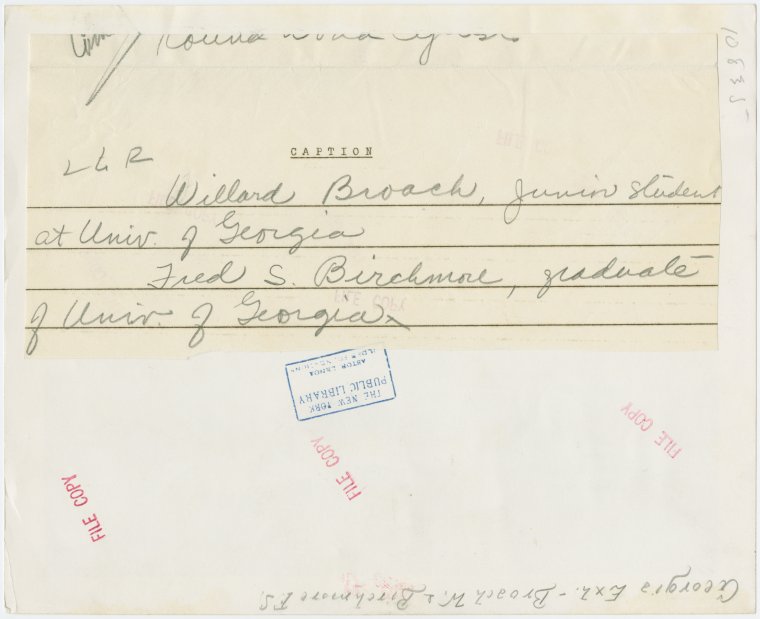 Round World Cyclists
10835
CAPTION
L & R
Willard Broach, Junior student
at Univ. of Georgia
Fred S. Birchmore, graduate
of Univ. of Georgia
FILE COPY
THE NEW YORK
PUBLIC LIBRARY
ASTOR LENOX
TILDEN FOUNDATIONS
FILE COPY
FILE COPY
FILE COPY
Georgia Exh. - Broach W. & Birchmore F.S.